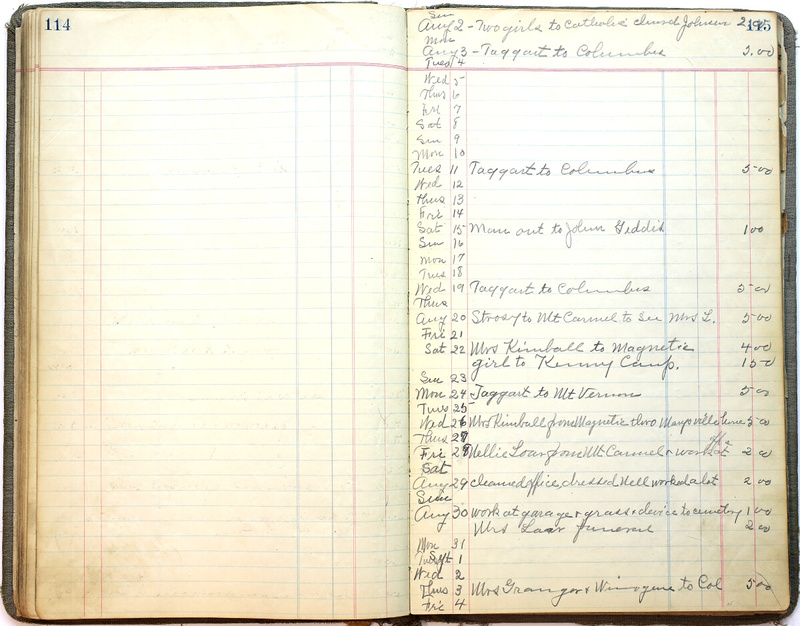 114
115
Sun
Aug 2 - Two girls to Catholic church Johnson 2
Mon
Aug 3 - Taggart to Columbus 5.00
Tues 4
Wed 5
Thus 6
Fri 7
Sat 8
Sun 9
Mon 10
Tues 11 Taggart to Columbus 5 00
Wed 12
Thus 13
Fri 14
Sat 15 Man out to John Geddis 1 00
Sun 16
Mon 17
Tues 18
Wed 19 Taggart to Columbus 5 00
Thus
Aug 20 to Mt Carmel to See Mrs L. 5 00
Fri 21
Sat 22 Mrs Kimball to Magnetic 4 00
girl to Kenny Camp. 1 50
Sun 23
Mon 24 Taggart to Mt Vernon 5 00
Tues 25
Wed 26 Mrs Kimball from Magnetic thro Marysville 5 00
Thus 27
Fri 28 Nellie Loar from Mt Carmel + work at 2 00
Sat
Aug 29 cleaned office, dressed Nell worked a lot 2 00
Sun
Aug 30 work at garage + grass + device to cemetery 1 00
Mrs Loar funeral 2 00
Mon 31
Tues Sept 1
Wed 2
Thus 3 Mrs Granger + Winogene to Col 5 00
Fri 4